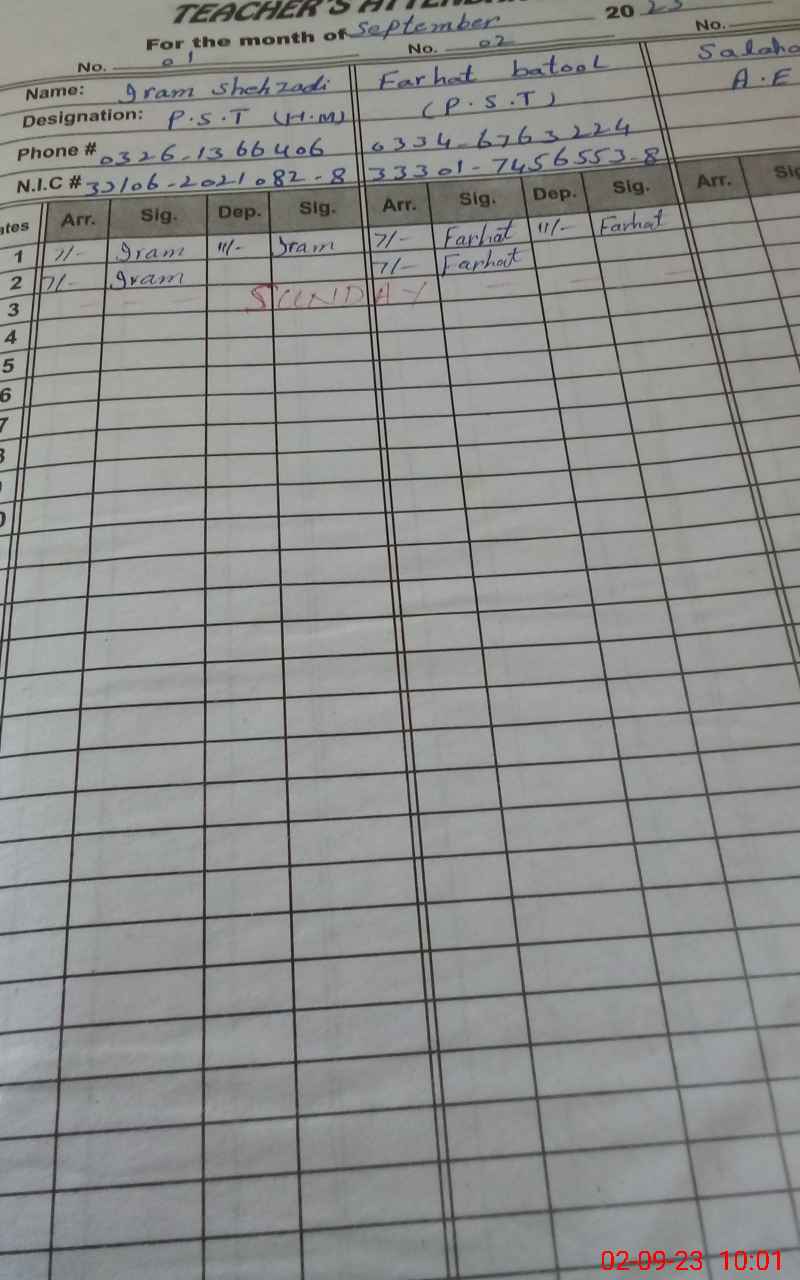 TEACHER'S
For the month of September 20 23
No. 01 No. 02 No.
Name: Iram Shehzadi Farhat batool
Designation: P.S.T (H.M) (P.S.T) A.E
Phone # 0326-1366406 0334-6763224
N.I.C # 32106-2021082-8 33301-7456553-8
Arr. Sig. Dep. Sig. Arr. Sig. Dep. Sig. Arr.
1 7/- Iram 11/- Iram 7/- Farhat 11/- Farhat
2 7/- Iram 7/- Farhat
3 SUNDAY
4
5
6
02-09-23 10:01